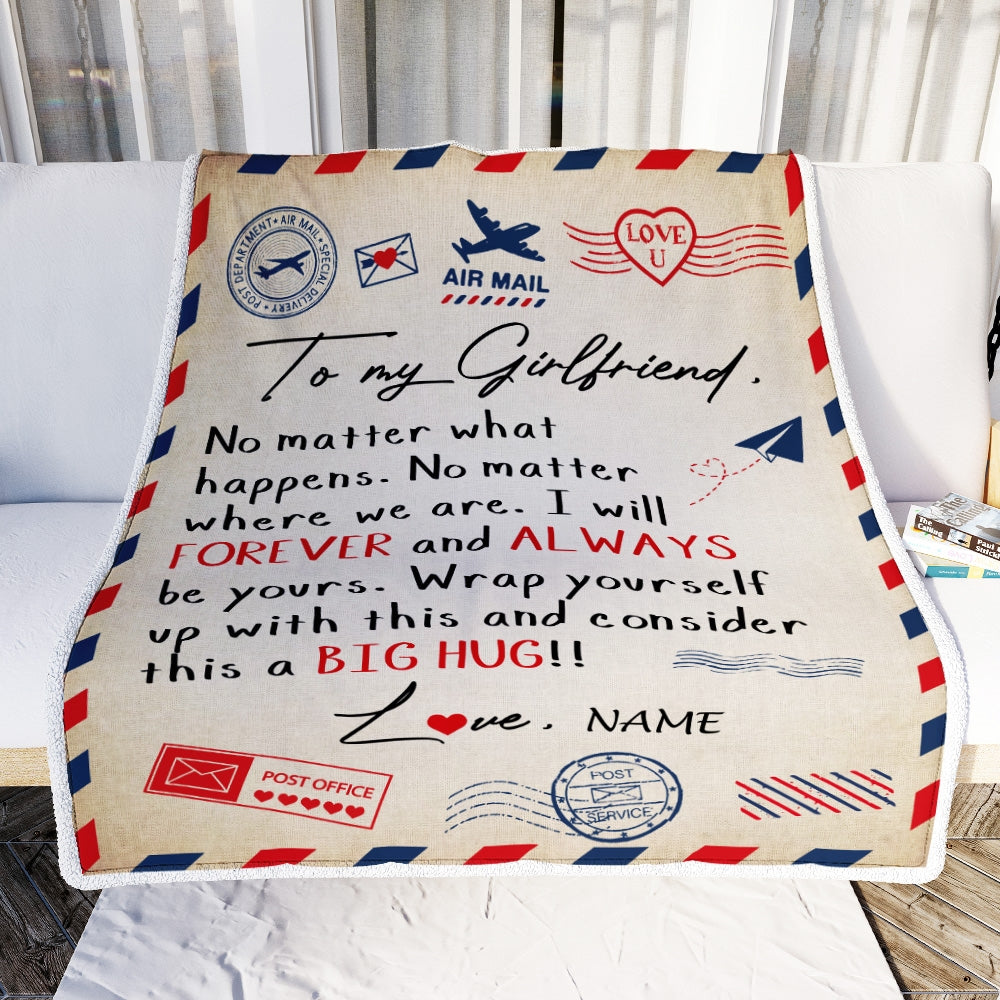 POST DEPARTMENT ★ AIR MAIL ★ SPECIAL DELIVERY
AIR MAIL
LOVE
U
To my Girlfriend,
No matter what
happens. No matter
where we are. I will
FOREVER and ALWAYS
be yours. Wrap yourself
up with this and consider
this a BIG HUG!!
Love, NAME
POST OFFICE
POST
SERVICE
The
Calling
Paul